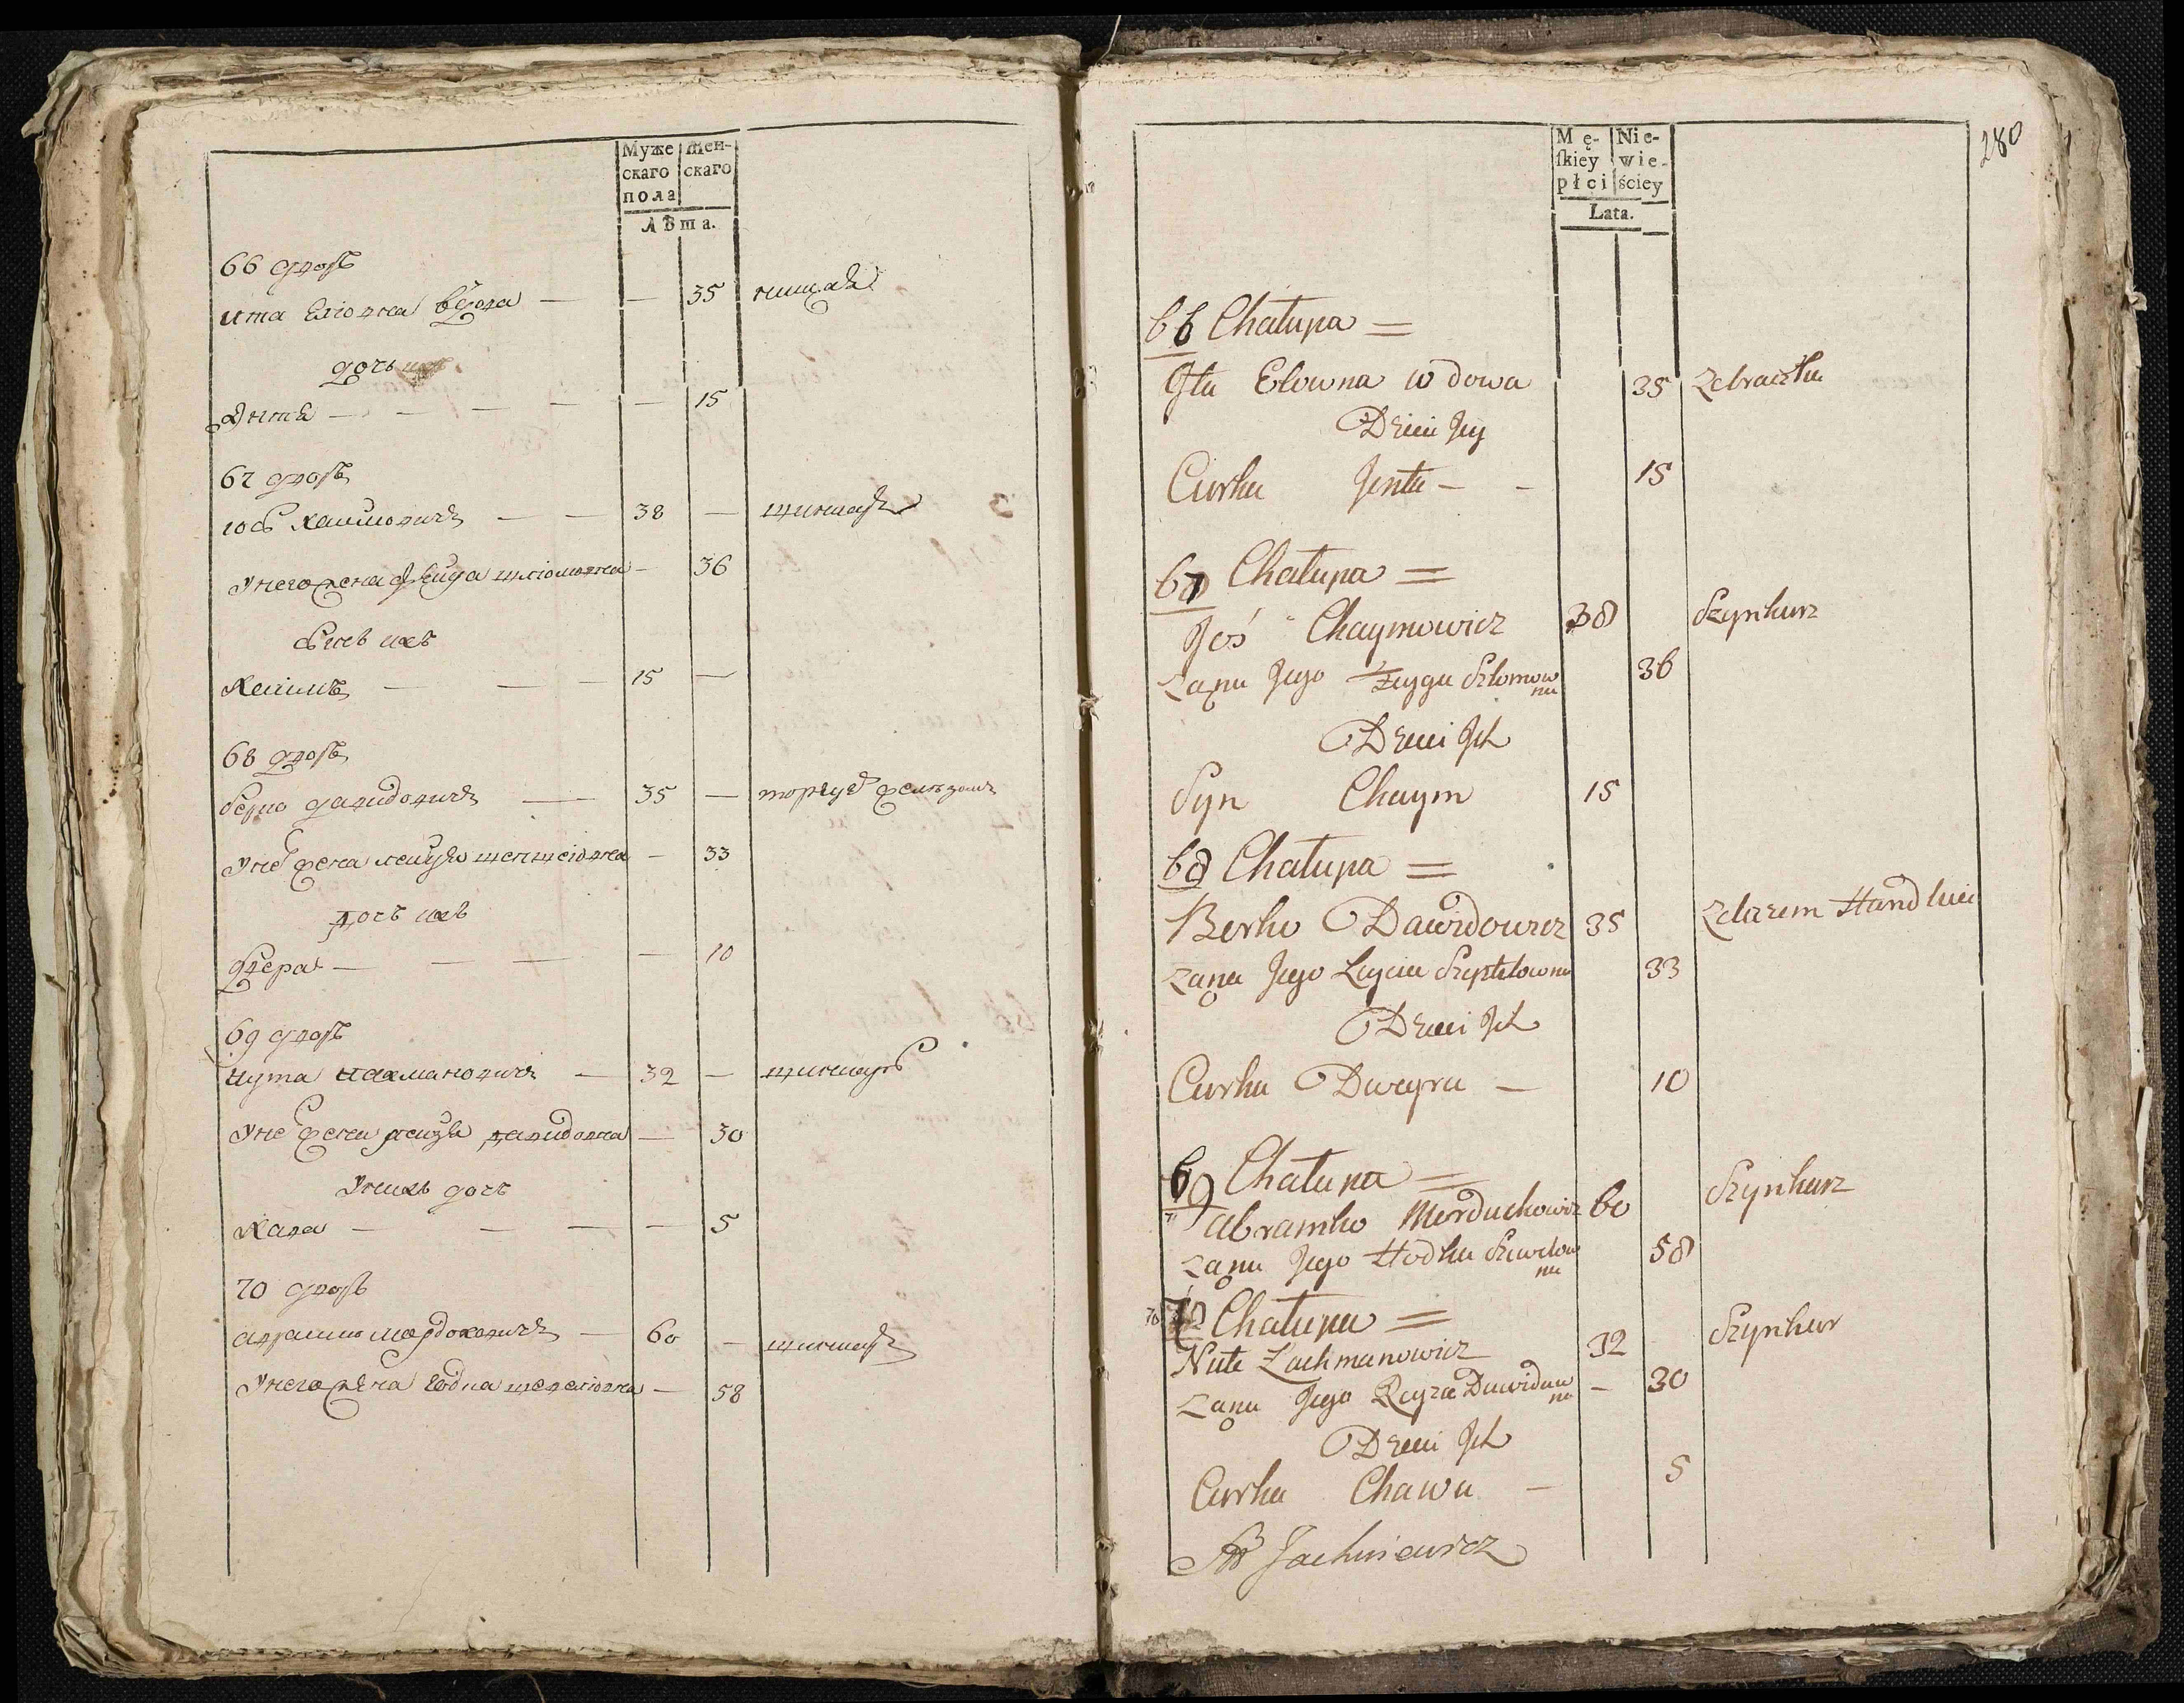 Муже
скаго
пола
Жен-
скаго
Лѣта.
66 дворъ
ита еліовна вдова — — 35 нищая
дочь
Энта — — — — — 15
67 дворъ
иось хаимовичъ — — 38 — шинкаръ
У него жена Фейга шліомовна — 36
Сынъ ихъ
Хаимъ — — — 15 —
68 дворъ
берко давидовичъ — 35 — торгуе железомъ
У не жена — 33
дочь ихъ
двера — — — — 10
69 дворъ
Нута нахмановичъ — 32 — шинкарь
У не жена рейза давидовна — 30
У нихъ дочь
Хава — — — — 5
70 дворъ
аврамко мордоховичъ — 60 — шинкаръ
У него жена Годка шевеліовна — 58
280
Mę-
ſkiey
płci
Nie-
wie-
ściey
Lata.
66 Chałupa =
Ita Elowna wdowa 35 Zebraczka
Dzieci Jey
Curka Jenta — — 15
67 Chałupa =
Joś Chaymowicz 38 Szynkarz
Zona Jego Feyga Szlomow
na 36
Dzieci Ich
Syn Chaym 15
68 Chałupa =
Berko Dawidowicz 35 Zelazem Handluie
Zona Jego Leycia 33
Dzieci Ich
Curka Dweyra — 10
69 Chałupa =
Abramko Morduchowicz 60 Szynkarz
Zona Jego Hodka Szewelow
na 58
70 Chałupa =
Nuta Nachmanowicz 32 Szynkar
Zona Jego Reyza Dawidow
na — 30
Dzieci Ich
Curka Chawa — 5
Jachniewicz